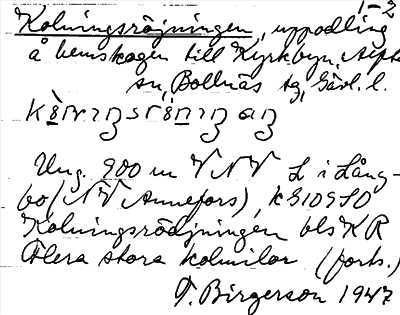 1-2
Kolningsröjningen, uppodling
å hemskogen till Kyrkbyn, Alfta
sn, Bollnäs tg, Gävl. l.
Ung. 900 m VNV L i Lång-
bo (NV Annefors), k 9109 SO
Kolningsröjningen bls KR
Flera stora kolmilor (forts.)
T. Birgerson 1947